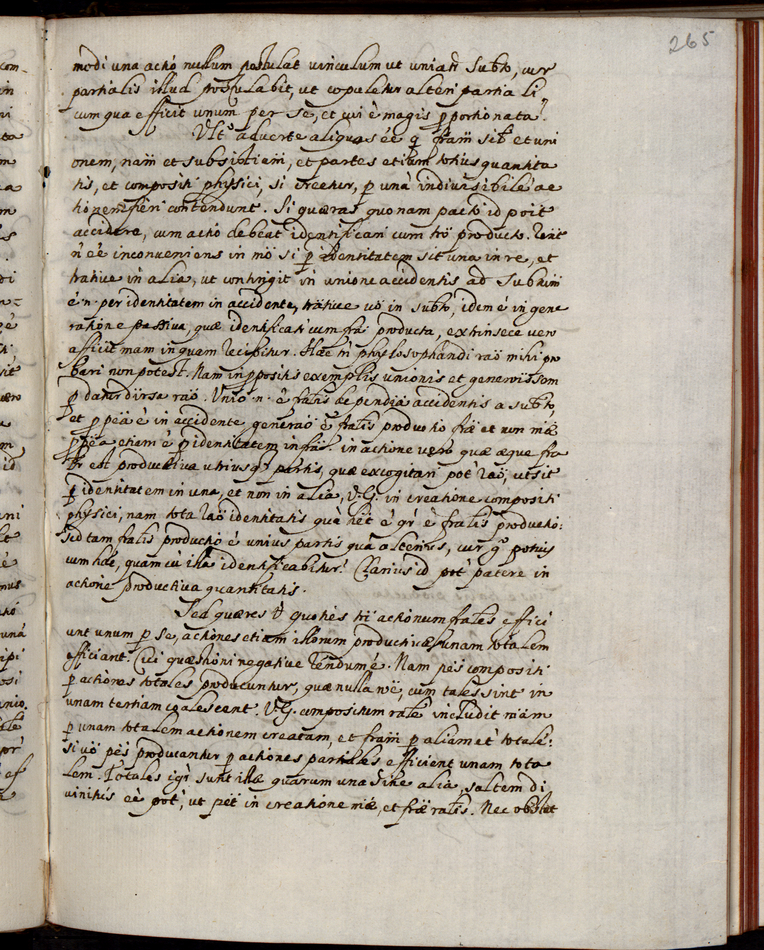 265
modi una actio nullum postulat vinculum ut uniat̃ Subto, cur
partialis illud postulabit, ut copuletur alteri partiali
cum qua efficit unum per se, et cui ẽ magis pportionata?
Ult.º adverte aliquas eẽ q̃ fram̃ sib̃ et uni
onem, nam̃ et subsistiam̃, et partes etiam totius quantita
tis, et compositi physici, si creetur, p una indivisibile ac
tione fieri contendunt. Si quæras quonam pacto id poit
accidere, cum actio debeat identificari cum tr̃o producto.
ñ eẽ inconveniens in mõ si p identitatem sit una in re, et
trative in alia, ut contingit in unione accidentis ad Subtum
ẽ n. per identitatem in accidente, trative vò in subto, idem ẽ in gene
ratione passiva, quæ identificati cum fra producta, extrinsece vero
afficit mam in quam recipitur. Hæc tñ phylosophandi raõ mihi pro
bari non potest. Nam in ppositis exemplis unionis et generõis som
p datur dirsa raõ. Unio n. ẽ fralis dependia accidentis a subto,
et p peã ẽ in accidente generaõ ẽ fralis productio fræ et non mæ
p peã etiam ẽ p identitatem in fra. in actione vero quæ æque fra
lr est productiva utriusq; partis, quæ excogitari pot raõ, ut sit
p identitatem in una, et non in alia, V.G. in creatione compositi
physici, nam tota raõ identitatis quẽ het ẽ qr ẽ fralis productio:
sed tam fralis productio ẽ unius partis quã alterius, cur g.º potius
cum hac, quam cũ illa identificabitur? Clarius id pot patere in
actione productiva quantitatis.
Sed quæres quoties tri actionum frales effici
unt unum p se, actiones etiam illorum productivæ unam totalem
efficiant. Cui quæstioni negative rendum ẽ. Nam pes compositi
p actiones totales producuntur, quæ nulla rõe, cum tales sint in
unam tertiam coalescent. V.G. compositum rale includit mam
p unam totalem actionem creatam, et fram p aliam et totale:
si vò pes producantur p actiones partiales efficient unam tota
lem. Totales igr sunt illæ quarum una sine alia, saltem di
vinitus eẽ pot, ut pet in creatione mæ, et fræ ralis. Nec obstat